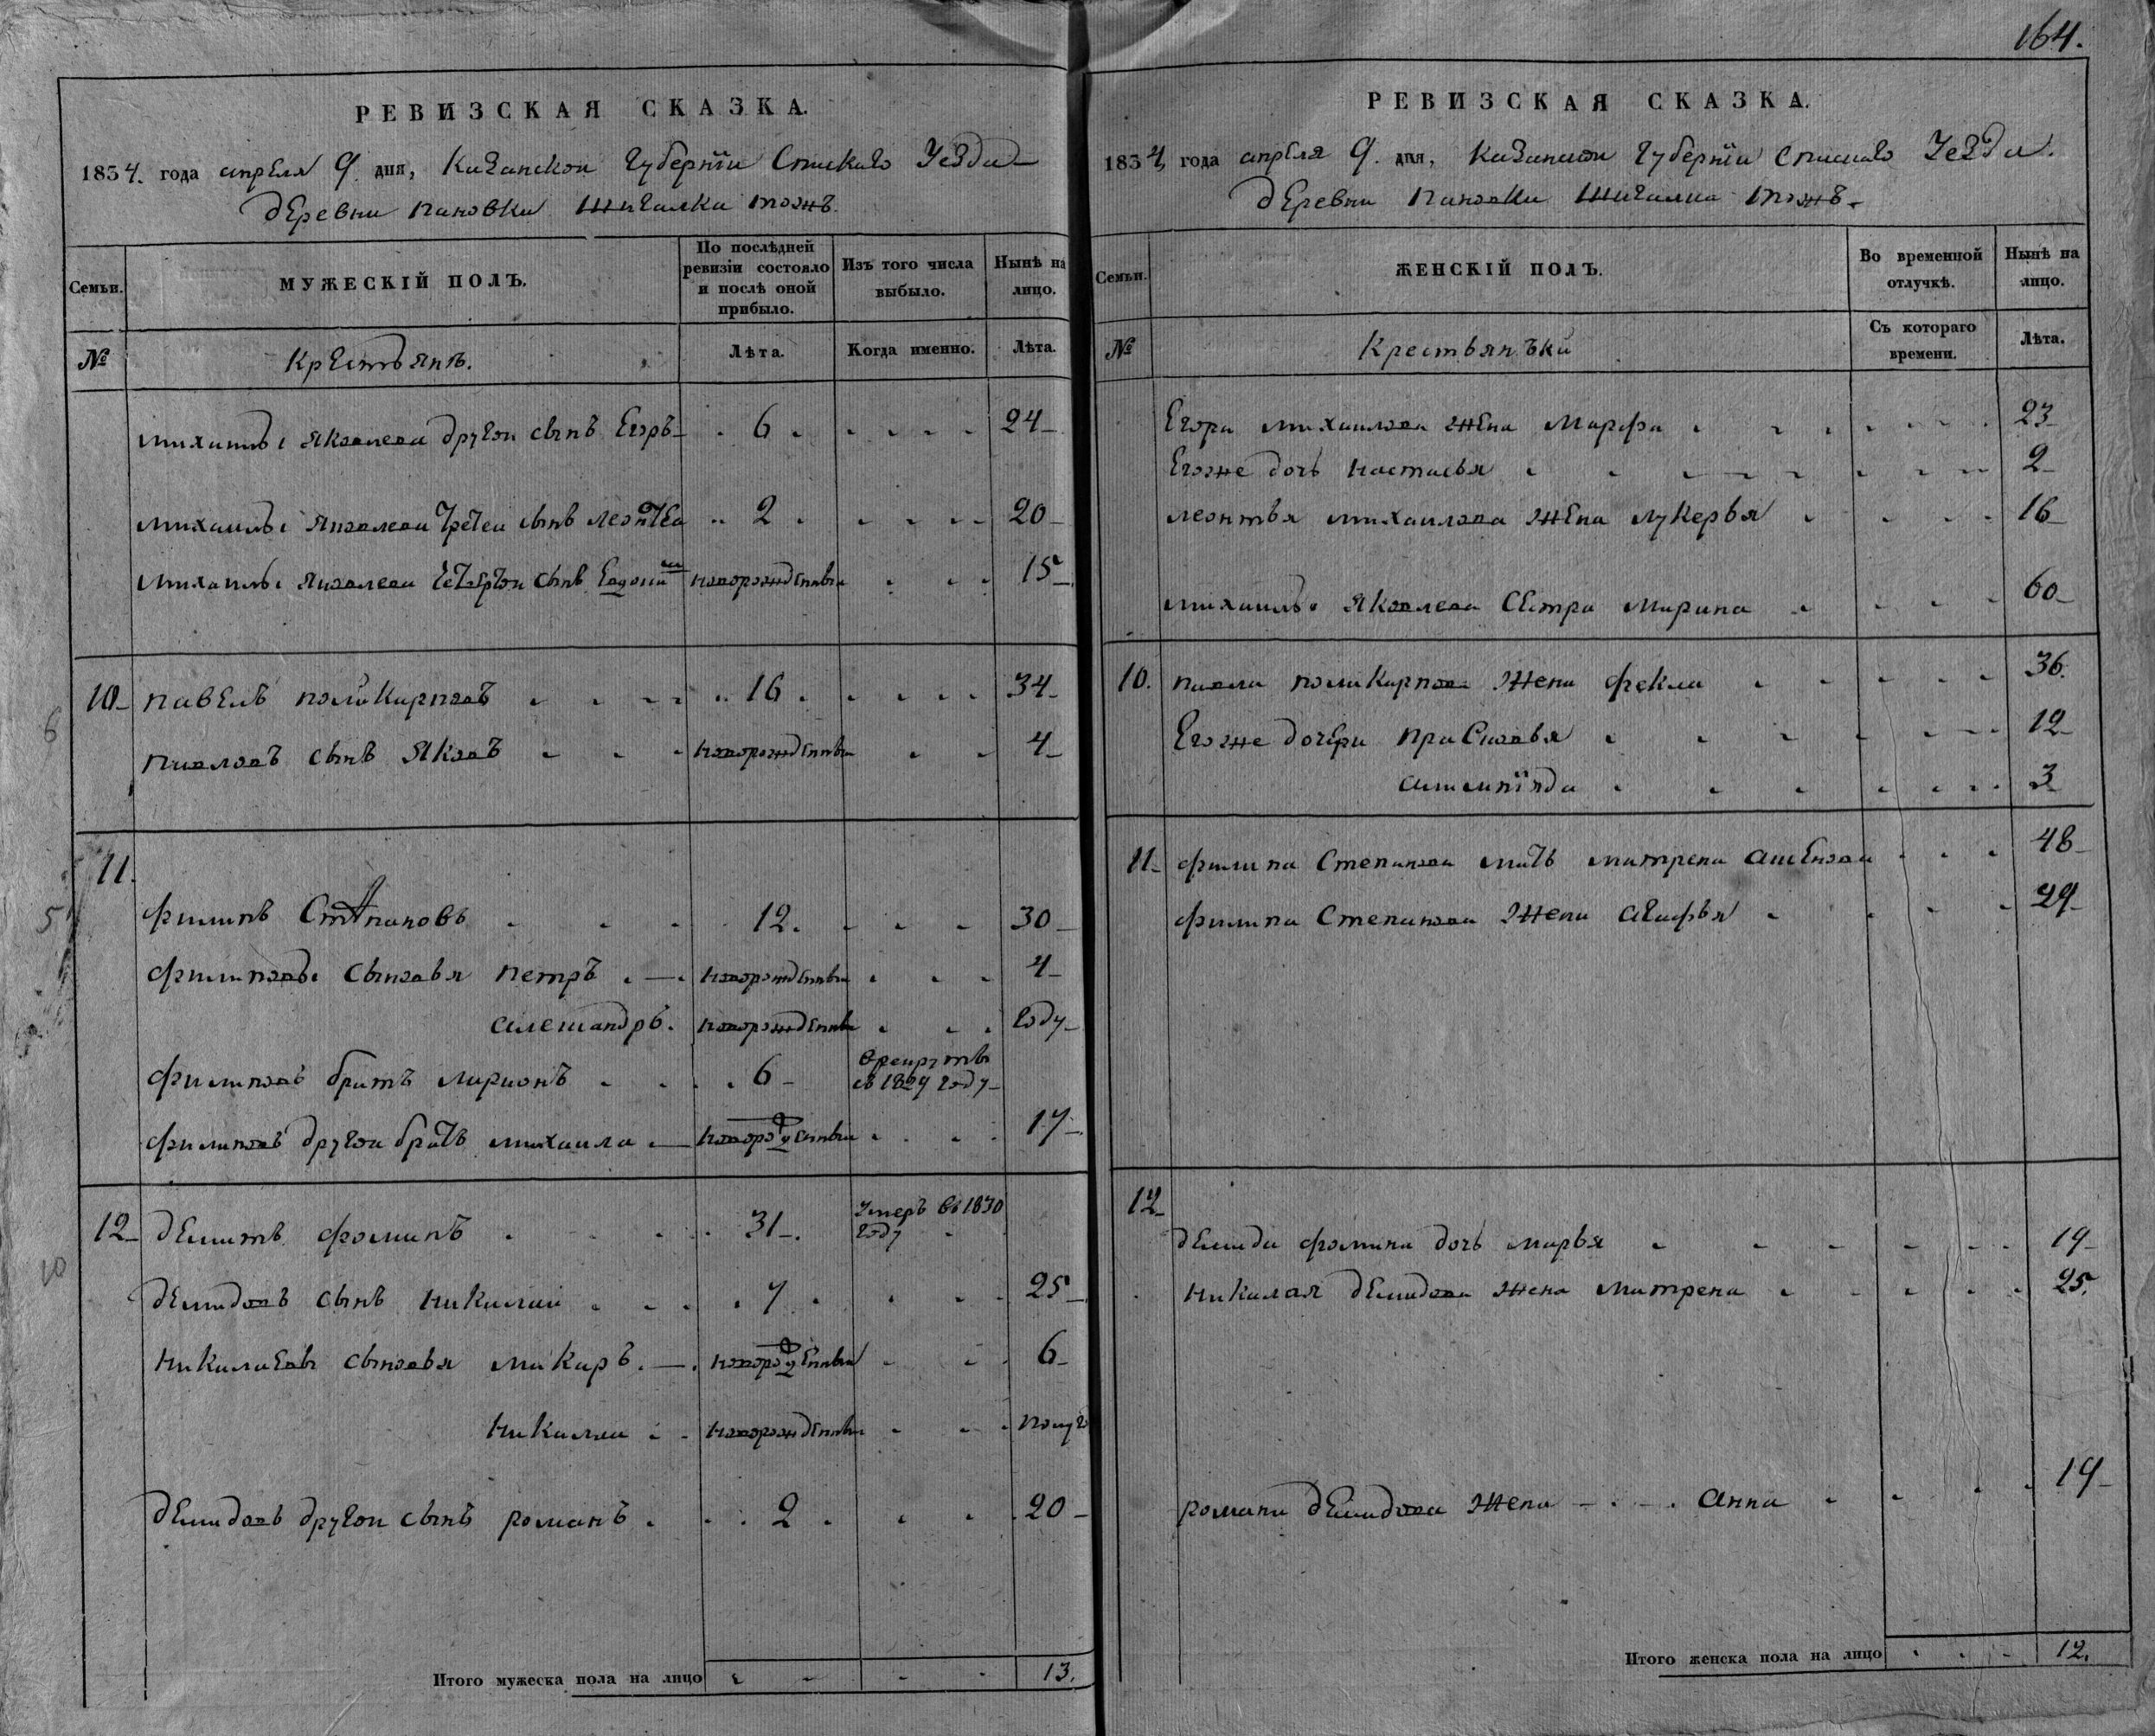 164.
РЕВИЗСКАЯ СКАЗКА.
1834. года апреля 9. дня, Казанской губернїи Спаскаго Уезда
деревни пановки Шигалки тожъ.
Семьи.
МУЖЕСКІЙ ПОЛЪ.
По послѣдней ревизіи состояло и послѣ оной прибыло.
Изъ того числа выбыло.
Нынѣ на лицо.
№
Крестьянъ.
Лѣта.
Когда именно.
Лѣта.
михаилы яковлева другои сынъ Егоръ 6 24
михаилы яковлева третеи сынъ леонтеи 2 20
михаилы яковлева четвертои сынъ новорожденныи 15
10 павелъ поликарповъ 16 34
павловъ сынъ яковъ новорожденныи 4
11.
филипъ Степановъ 12. 30
филиповы сыновья петръ новорожденныи 4
александръ. новорожденныи году
филиповъ братъ ларионъ 6 врекруты въ 1827 году
филиповъ другои братъ михаила новорожденныи 17
12 демитъ фоминъ 31 Умеръ въ 1830 году
демидовъ сынъ николаи 7 25
николаевы сыновья макаръ. новорожденныи 6
николаи новорожденныи полуго
демидовъ другои сынъ романъ 2 20
Итого мужеска пола на лицо 13.
РЕВИЗСКАЯ СКАЗКА.
1834, года апреля 9. дня, Казанскои губернїи Спаскаго Уезда.
деревни пановки Шигалки тожъ
Семьи.
ЖЕНСКІЙ ПОЛЪ.
Во временной отлучкѣ.
Нынѣ на лицо.
№
Крестьянъки
Съ котораго времени.
Лѣта.
Егора михаилова жена Марфа 23
Егоже дочь настасья 2
леонтья михаилова жена лукерья 16
михаилы яковлева сестра марина 60
10. павла поликарпова жена фекла 36.
Егоже дочери прасковья 12
3
11 филипа степанова мать матрена 48
филипа степанова жена агафья 29
12
демида фомина дочь марья 19
николая демидова жена матрена 25.
романа демидова жена анна 19
Итого женска пола на лицо 12.